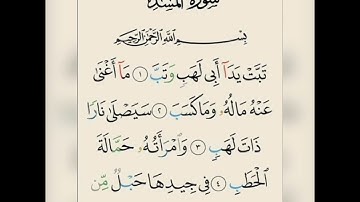 سُورَةُ المَسَدِ
بِسْمِ اللَّهِ الرَّحْمَٰنِ الرَّحِيمِ
تَبَّتْ يَدَآ أَبِى لَهَبٍ وَتَبَّ ١ مَآ أَغْنَىٰ
عَنْهُ مَالُهُۥ وَمَا كَسَبَ ٢ سَيَصْلَىٰ نَارًا
ذَاتَ لَهَبٍ ٣ وَٱمْرَأَتُهُۥ حَمَّالَةَ
ٱلْحَطَبِ ٤ فِى جِيدِهَا حَبْلٌ مِّن